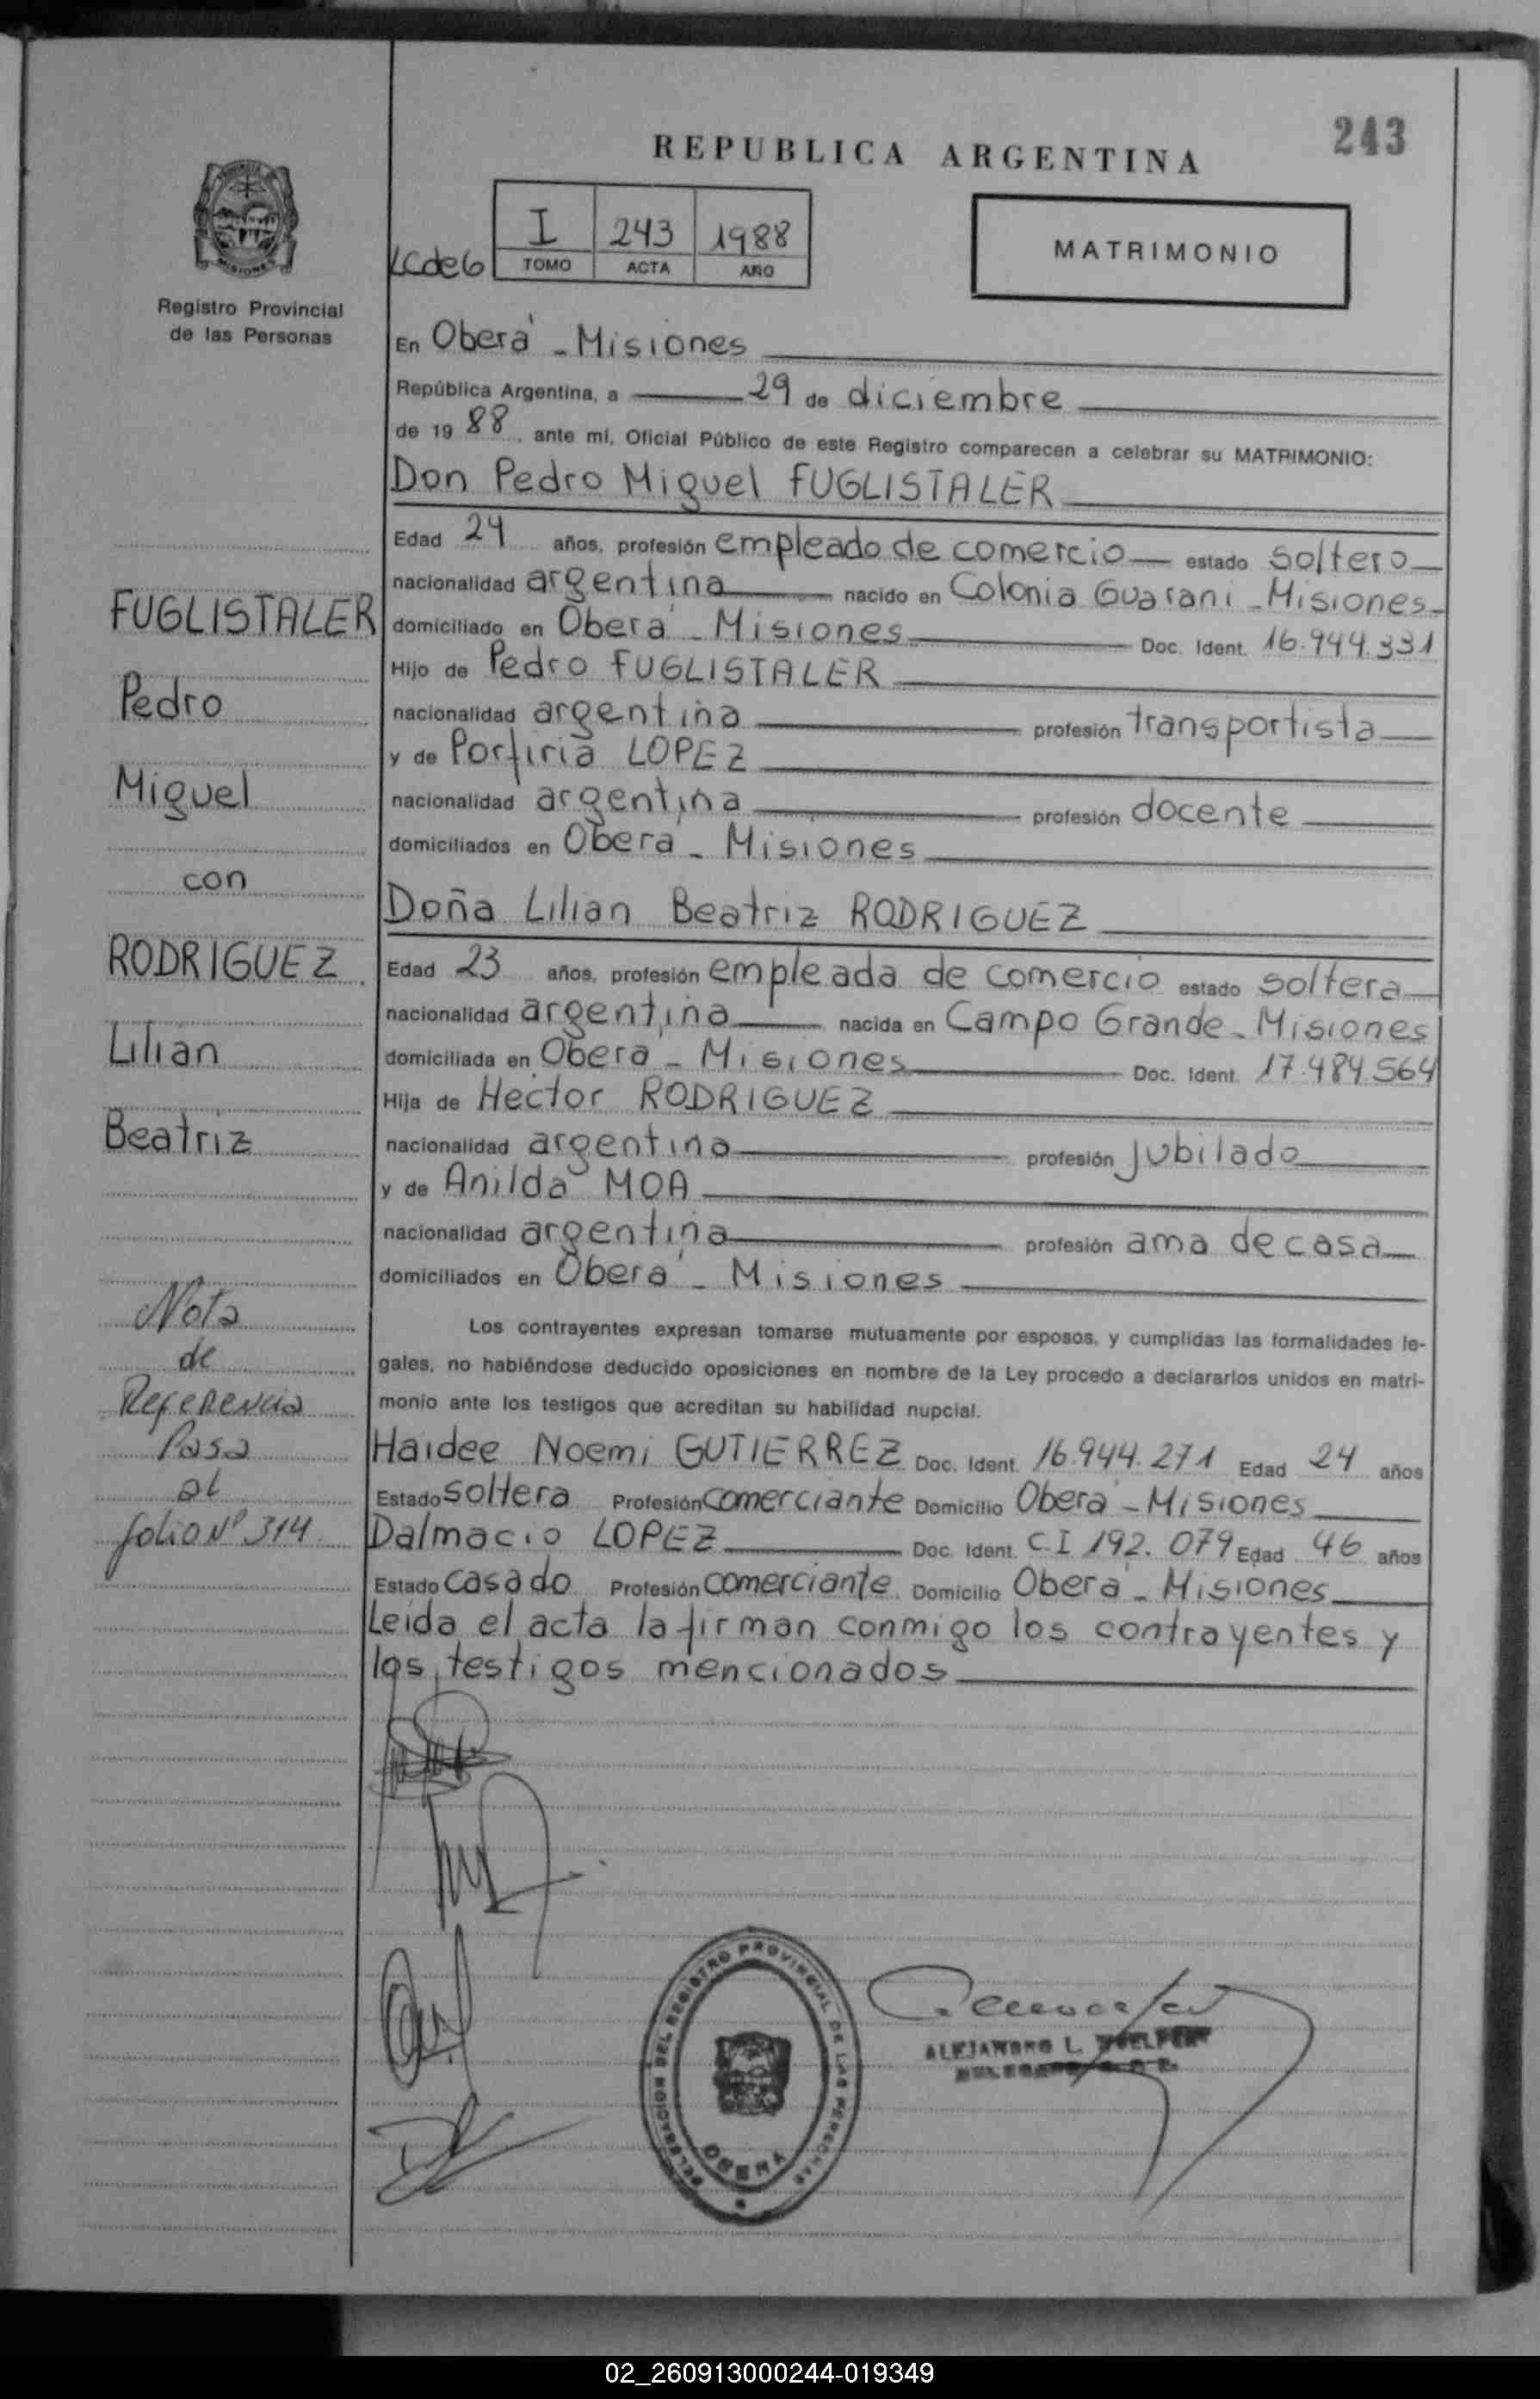 243
REPUBLICA ARGENTINA
I 243 1988
TOMO ACTA AÑO
MATRIMONIO
Registro Provincial
de las Personas
En Oberá - Misiones
República Argentina, a 29 de diciembre
de 19 88, ante mí, Oficial Público de este Registro comparecen a celebrar su MATRIMONIO:
Don Pedro Miguel FUGLISTALER
Edad 24 años, profesión empleado de comercio estado soltero
nacionalidad argentina nacido en Colonia Guarani - Misiones
domiciliado en Oberá - Misiones Doc. Ident. 16.944.331
Hijo de Pedro FUGLISTALER
nacionalidad argentina profesión transportista
y de Porfiria LOPEZ
nacionalidad argentina profesión docente
domiciliados en Oberá - Misiones
Doña Lilian Beatriz RODRIGUEZ
Edad 23 años, profesión empleada de comercio estado soltera
nacionalidad argentina nacida en Campo Grande - Misiones
domiciliada en Oberá - Misiones Doc. Ident. 17.484.564
Hija de Hector RODRIGUEZ
nacionalidad argentina profesión Jubilado
y de Anilda MOA
nacionalidad argentina profesión ama de casa
domiciliados en Oberá - Misiones
Los contrayentes expresan tomarse mutuamente por esposos, y cumplidas las formalidades le-
gales, no habiéndose deducido oposiciones en nombre de la Ley procedo a declararlos unidos en matri-
monio ante los testigos que acreditan su habilidad nupcial.
Haidee Noemi GUTIERREZ Doc. Ident. 16.944.271 Edad 24 años
Estado soltera Profesión comerciante Domicilio Oberá - Misiones
Dalmacio LOPEZ Doc. Ident. C.I 192.079 Edad 46 años
Estado casado Profesión comerciante Domicilio Oberá - Misiones
Leida el acta la firman conmigo los contrayentes y
los testigos mencionados
FUGLISTALER
Pedro
Miguel
con
RODRIGUEZ
Lilian
Beatriz
Nota
de
Referencia
Pasa
al
folio Nº 314
DELEGACION DEL REGISTRO PROVINCIAL DE LAS PERSONAS
OBERA
ALEJANDRO L.
02_260913000244-019349